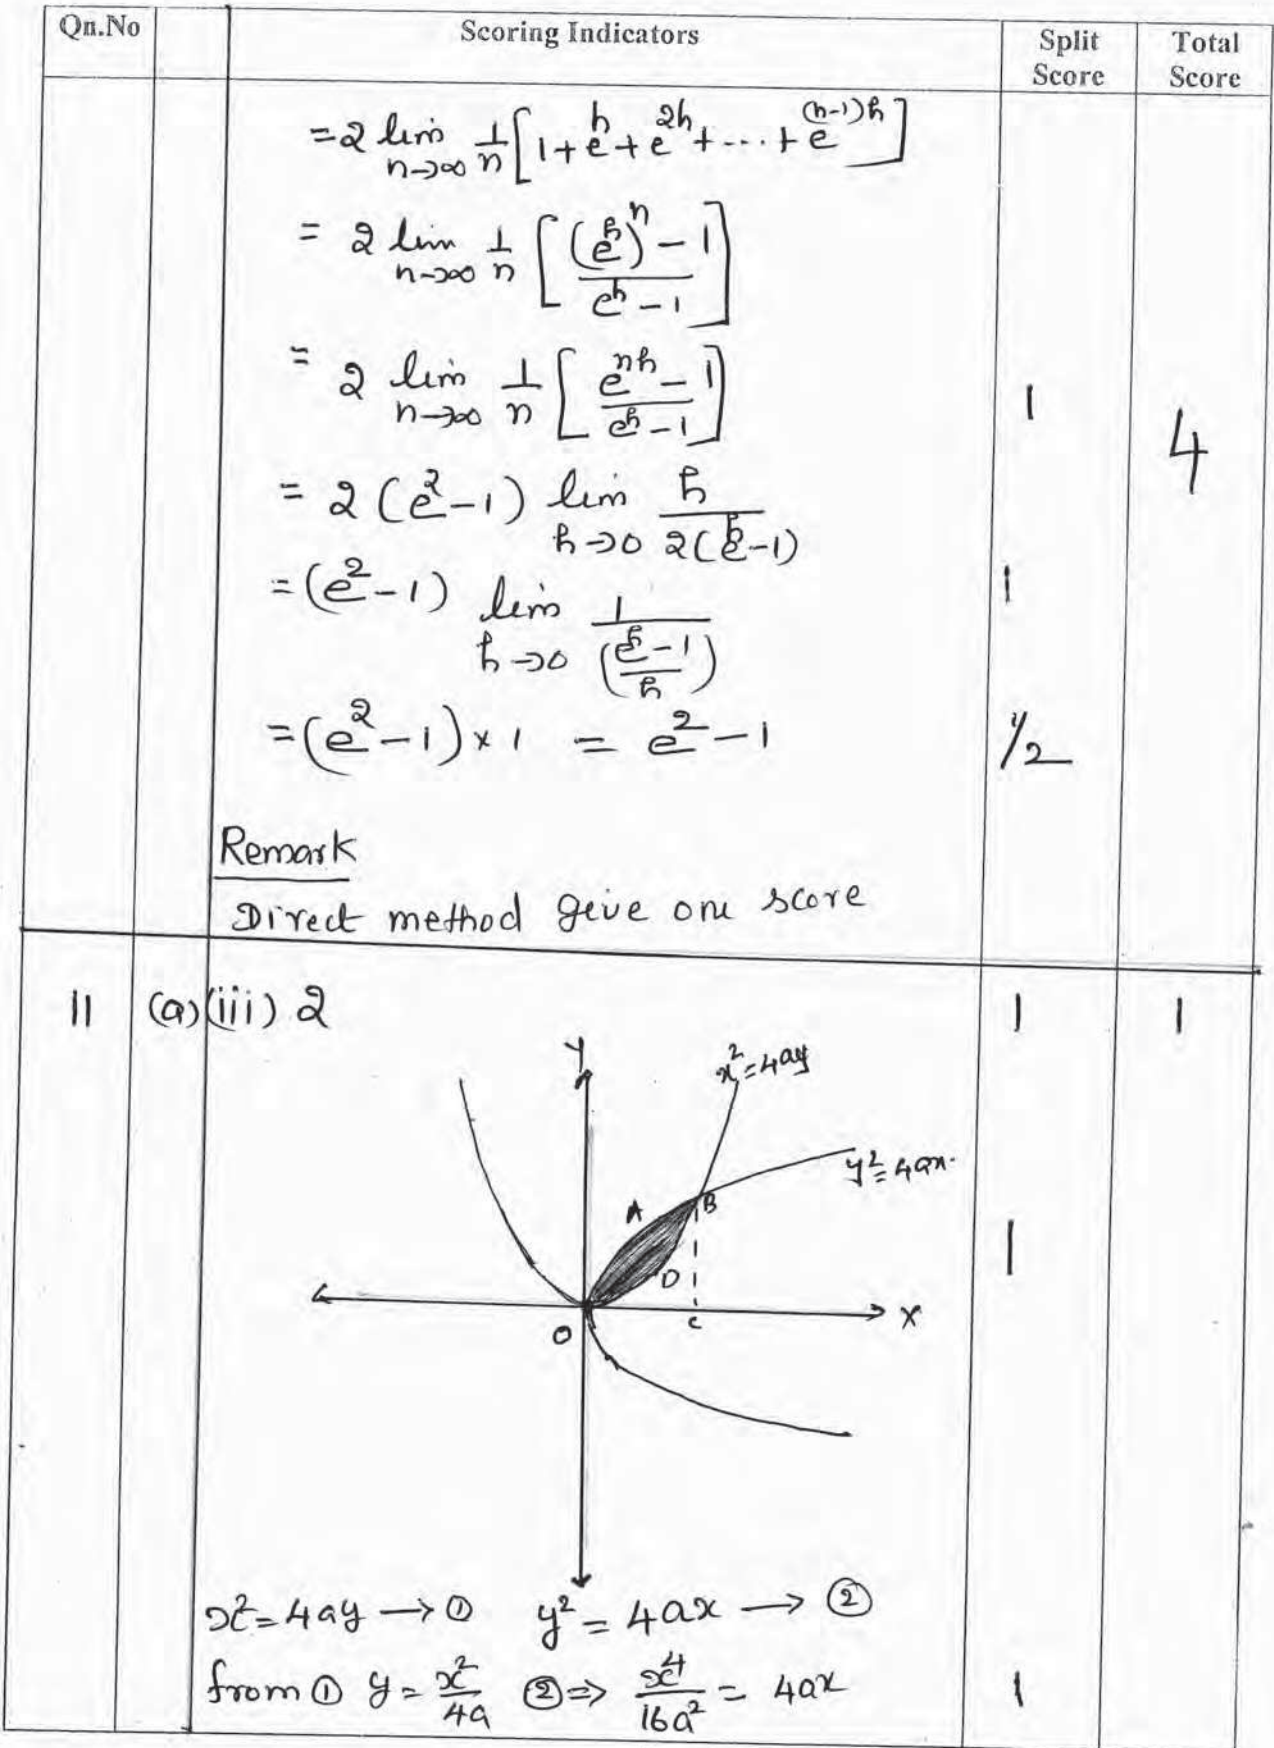 Qn.No Scoring Indicators Split Score Total Score
= 2 lim n→∞ 1/n [1 + e^h + e^2h + ... + e^(n-1)h]
= 2 lim n→∞ 1/n [((e^h)^n - 1)/(e^h - 1)]
= 2 lim n→∞ 1/n [(e^nh - 1)/(e^h - 1)] 1 4
= 2 (e^2 - 1) lim h→0 h/(2(e^h - 1))
= (e^2 - 1) lim h→0 1/((e^h - 1)/h) 1
= (e^2 - 1) × 1 = e^2 - 1 1/2
Remark
Direct method give one score
11 (a) (iii) 2 1 1
Y
x^2 = 4ay
y^2 = 4ax.
A B
1
D
O C X
x^2 = 4ay → ① y^2 = 4ax → ②
from ① y = x^2/4a ② ⇒ x^4/16a^2 = 4ax 1